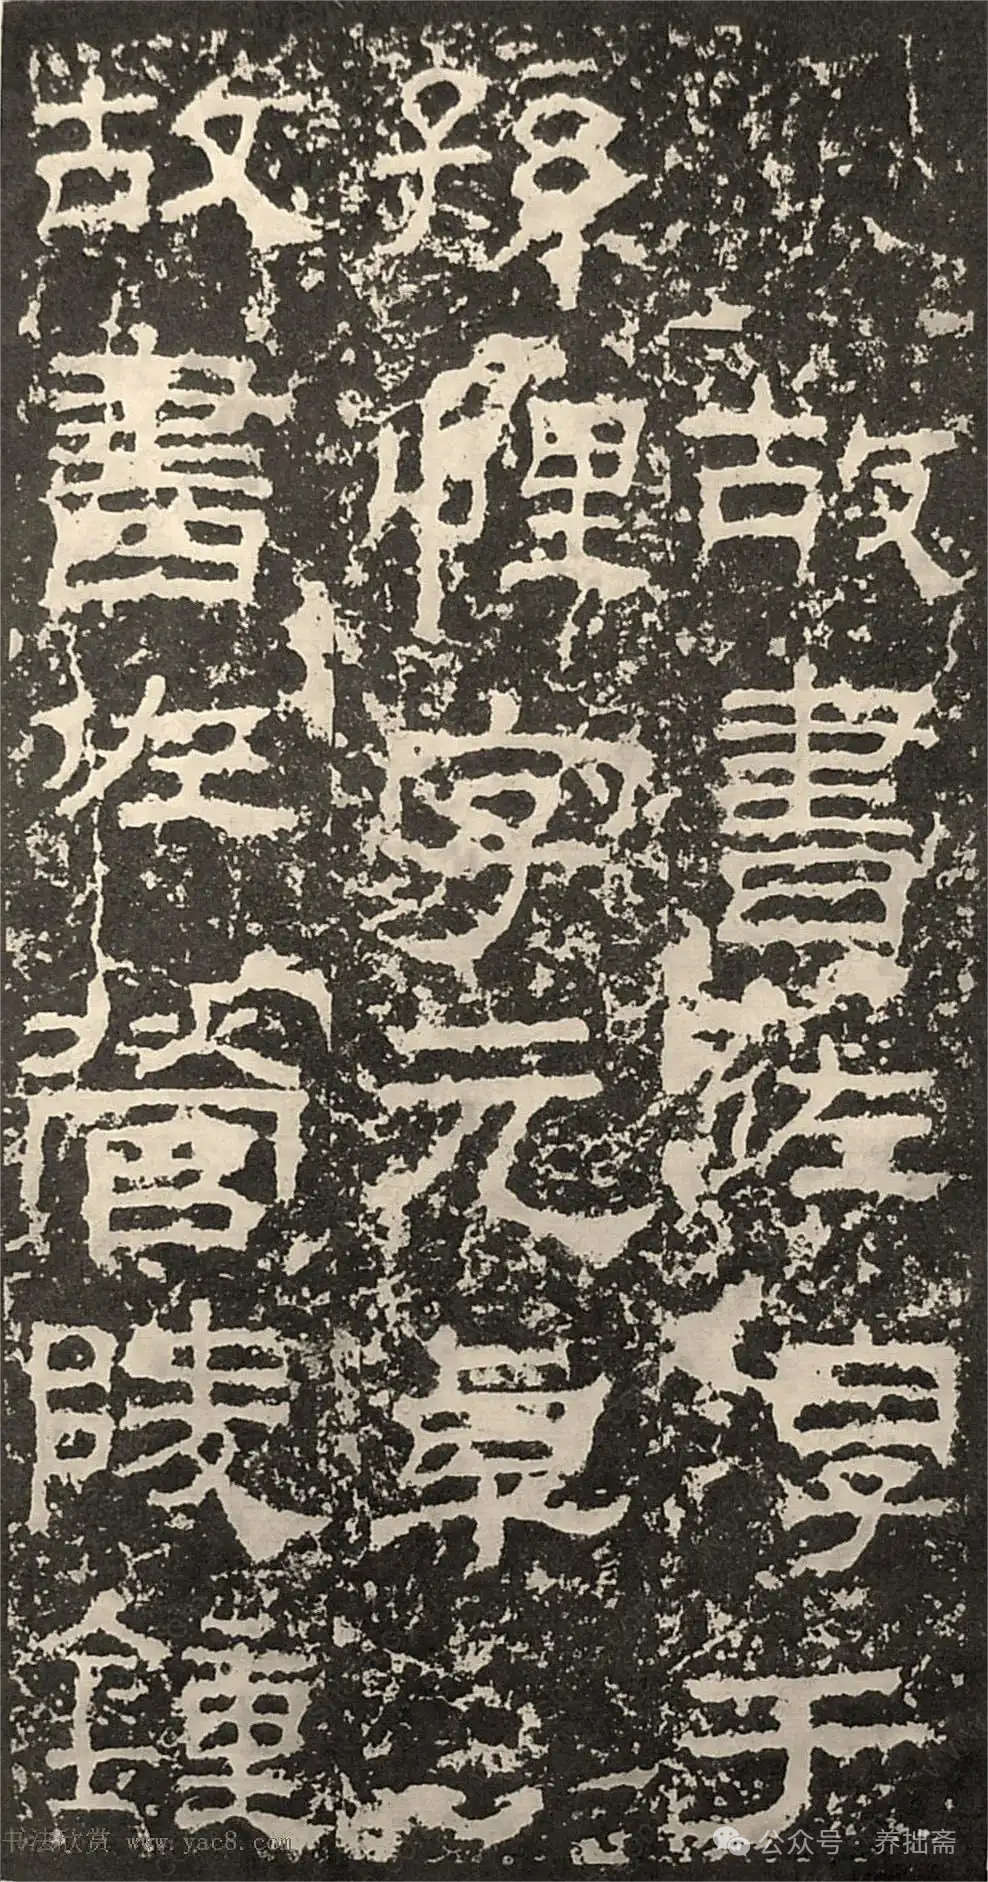 故書佐淳于
孫悝字元卓
故書佐營陵鍾
书法欣赏 www.yac8.com
公众号·养拙斋